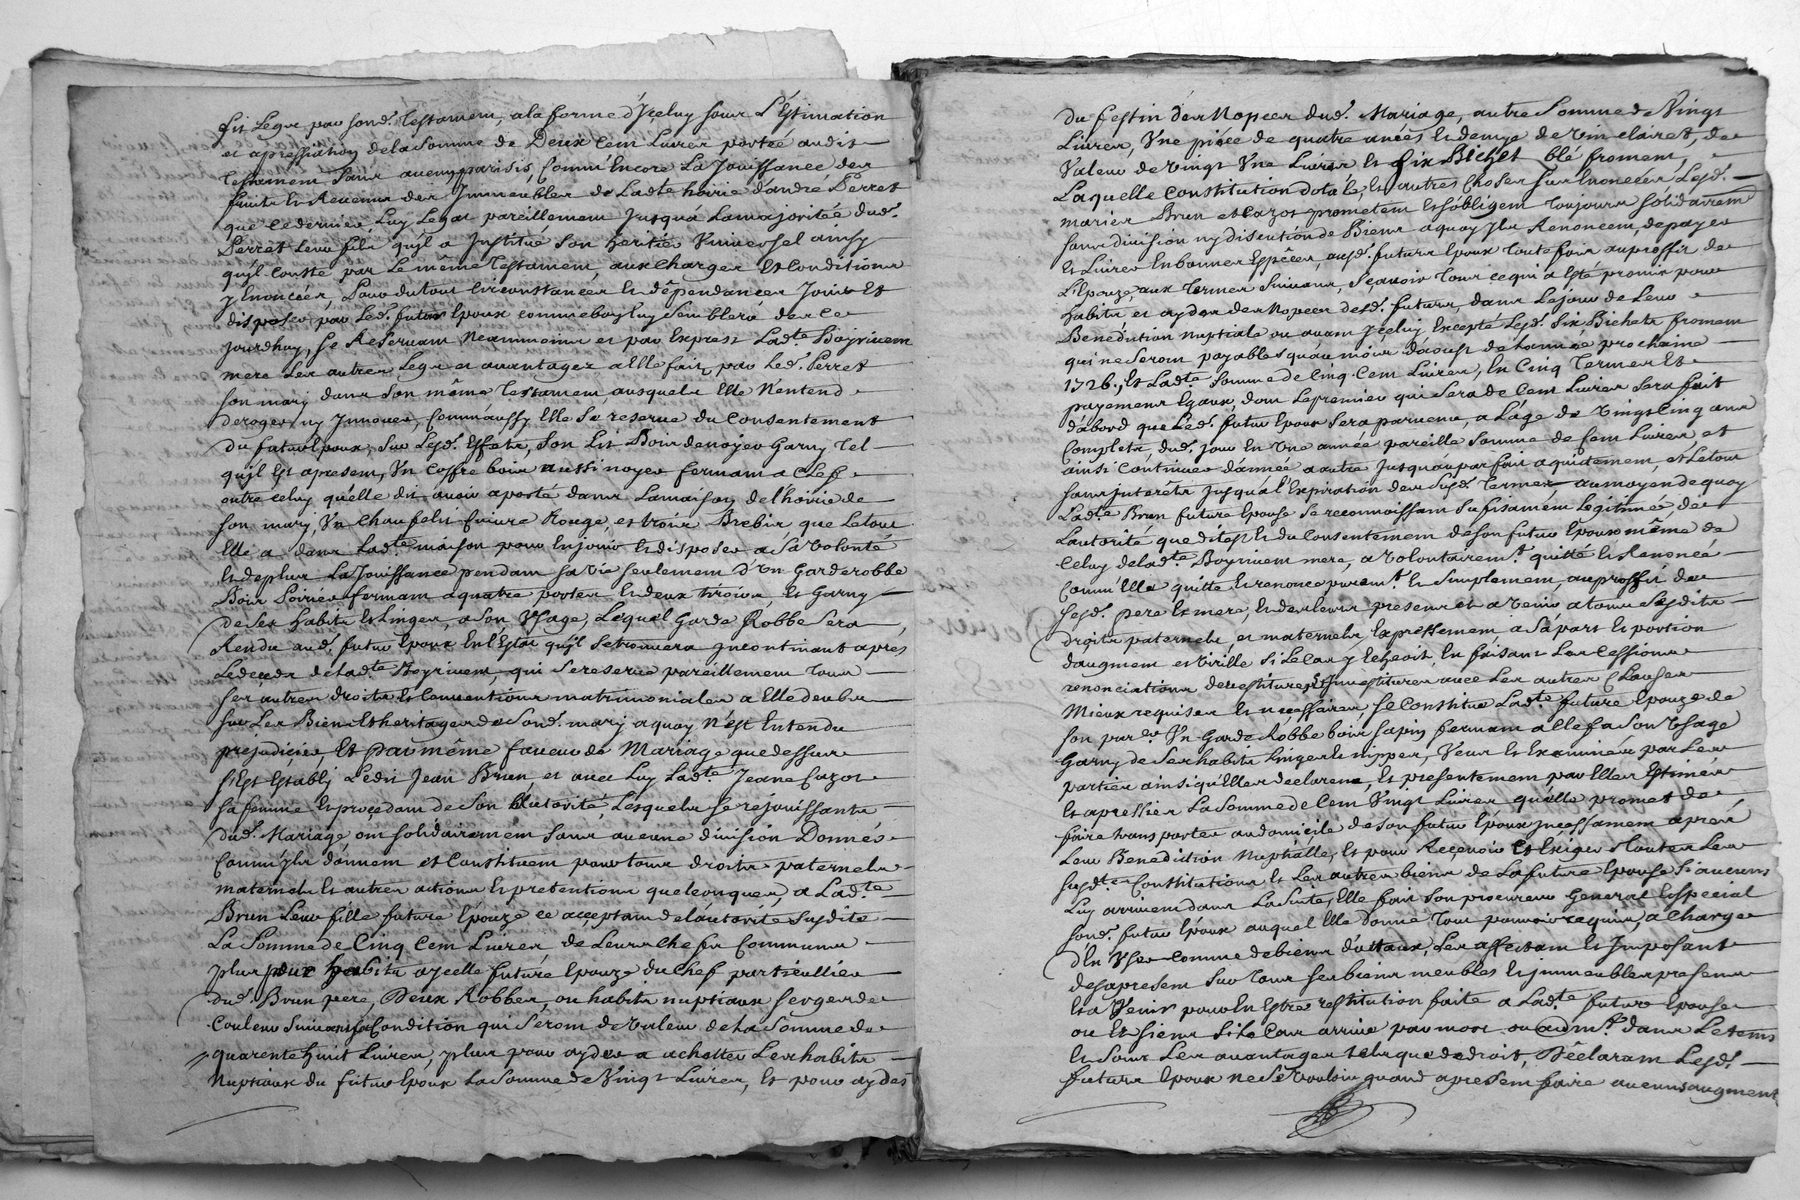 fit Legue par sond. Testament, a la forme d'Jceluy sous L'Estimation
et apressiation de la somme de Deux Cent Livres portée audit
Testament sans aucuns parisis, Comm'Encore La Jouissance des
fruits et Revenus des Jmmeubles de Ladte hoirie d'andré Perret
que Ce dernier Luy Legue pareillement Jusqua La majoritée dud.
Perret Leur fils qu'jl a Jnstitué son heritier Vniversel ainsy
qu'jl Conste par Le même Testament, aux Charges et Conditions
y Enoncées, Pour du tout Circonstances et dépendances Jouir Et
disposer par Led. futur Epoux comme bon luy semblera des Ce
Jourdhuy, se Reservant Neanmoins et par Exprest Ladte Boyrivent
mere Les autres Legue et avantages a Elle faits par Led. Perret
son mary dans son même Testament ausquels Elle N'entend
deroger ny Jnnover, Comm'aussy Elle se reserve du Consentement
du futur Epoux, sur Lesd. Effets, son Lit Bois de noyer Garny Tel
qu'jl Est apresent, Vn Coffre bois aussi noyer fermant a Clef
outre Celuy qu'elle dit avoir aporté dans La maison de l'hoirie de
son mary, Vn Chaufelit Cuivre Rouge, et trois Brebis que Le tout
Elle a dans Ladte maison pour En jouir et disposer a sa volonté
Et de plus La Jouissance pendant sa vie seulement d'Vn Garderobbe
Bois Poirier fermant a quatre portes et deux tiroirs, Et Garny
de ses habits et Linges a son Vsage, Lequel Garde Robbe sera
Rendu aud. futur Epoux En l'Estat qu'jl se trouvera jncontinant après
Le deceds de Ladte Boyrivent, qui se reserve pareillement Tous
ses autres droits et Conventions matrimoniales a Elle deubs
sur Les Biens et heritages de sond. mary a quoy N'est Entendu
prejudicier, Et Par même faveur de Mariage que dessus
s'Est Estably Ledit Jean Brun et avec Luy Ladte Jeane Cazot
sa femme et procedant de son Autorité, Lesquels se rejouissants
dud. Mariage ont solidairement sans aucune division Donnés
Comm'jls donnent et Constituent pour tous droits paternels
maternels Et autres actions et pretentions quelconques, a Ladte
Brun Leur fille future Epouze ce acceptant de l'autorité susdite
La Somme de Cinq Cent Livres, de Leurs Chefs Communs
plus pour habits a jcelle future Epouze du Chef particullier
dud. Brun pere, Deux Robbes, ou habits nuptiaux serge de
Couleur suivant sa Condition qui seront de valeur de La somme de
quarente huit Livres, plus pour ayder a achetter Les habits
Nuptiaux du futur Epoux La Somme de Vingt Livres, Et pour ayder
du festin des Nopces dud. Mariage, autre Somme de Vingt
Livres, Vne piéce de quatre anées Et demye de vin clairet, de
Valeur de Vingt Vne Livres Et six Bichet blé froment,
Laquelle Constitution dotale, Et autres choses sus Enoncées Lesd.
mariés Brun et Cazot prometent Et s'obligent Toujours solidairemt
sans division ny discution de Biens a quoy jls Renoncent, de payer
Et Livrer En bonnes Especes, ausd. futurs Epoux Toutefois au proffit de
L'Epouze, aux Termes suivans, sçavoir Tout ce qui a Esté promis pour
habits et ayder des Nopces desd. futurs, dans Le jour de Leur
Benédiction nuptiale ou avant Jceluy Excepté Lesd. Six Bichets froment
qui ne Seront payables qu'au mois d'aoust de L'année prochaine
1726, Et Ladte Somme de Cinq Cent Livres, En Cinq Termes Et
payemens Egaux, dont Le premier qui Sera de Cent Livres sera fait
d'abord que Led. futur Epoux Sera parvenu, a L'âge de Vingt Cinq ans
Complets, dud. jour En Vne année pareille somme de Cent Livres, et
ainsi Continuer d'année a autre jusqu'au parfait aquitement, et Le tout
sans jnterêts jusqu'al'Expiration des susd. Termes au moyen de quoy
Ladte Brun future Epouse se reconnoissant sufisament Legitimée de
L'autorité que dit est et du Consentement de son futur Epoux même de
Celuy de Ladte Boyrivent mere, a volontairemt quitté Et Renoncé
Comm'Elle quitte Et renonce puremt Et Simplement, au proffit de
sesd. pere Et mere, Et de Leurs presens et a venir a tous Susdits
droits paternels et maternels Expréssement a Sa part Et portion
d'augment et virille si Le Cas y Echeoit En faisant Les Cessions
renonciations devestitures Et Jnvestitures avec Les autres Clauses
Mieux requises Et necessaires Se Constitue Ladte future Epouze de
son par[...] Vn Garde Robbe bois sapin fermant a Clef a son Vsage
Garny de Ses habits Linges Et nippes, Veus Et Examinés par Les
parties ainsi qu'Elles declarent, Et presentement par Elles Estimés
Et apressiés La Somme de Cent Vingt Livres qu'elle promet de
faire transporter au domicile de son futur Epoux jncessament après
Leur Benediction Nuptialle, Et pour Recevoir Et Exiger Toutes Les
susdtes Constitutions Et Les autres biens de La future Epouse si aucuns
Luy arrivent dans La suite, Elle fait Son procureur General Et special
sond. futur Epoux auquel Elle donne Tout pouvoir requis, a Charge
d'En Vser comme de biens dottaux, Les affectant Et Jmposant
des apresent sur Tous ses biens meubles Et jmmeubles presens
Et a Venir pour En Estre restitution faite a Ladte future Epouse
ou Et siens si Le Cas arrive par mort ou autremt dans Le tems
Et sous Les avantages tels que de droit, Déclarant Lesd.
futurs Epoux ne Se vouloir quand apresent faire aucuns augment